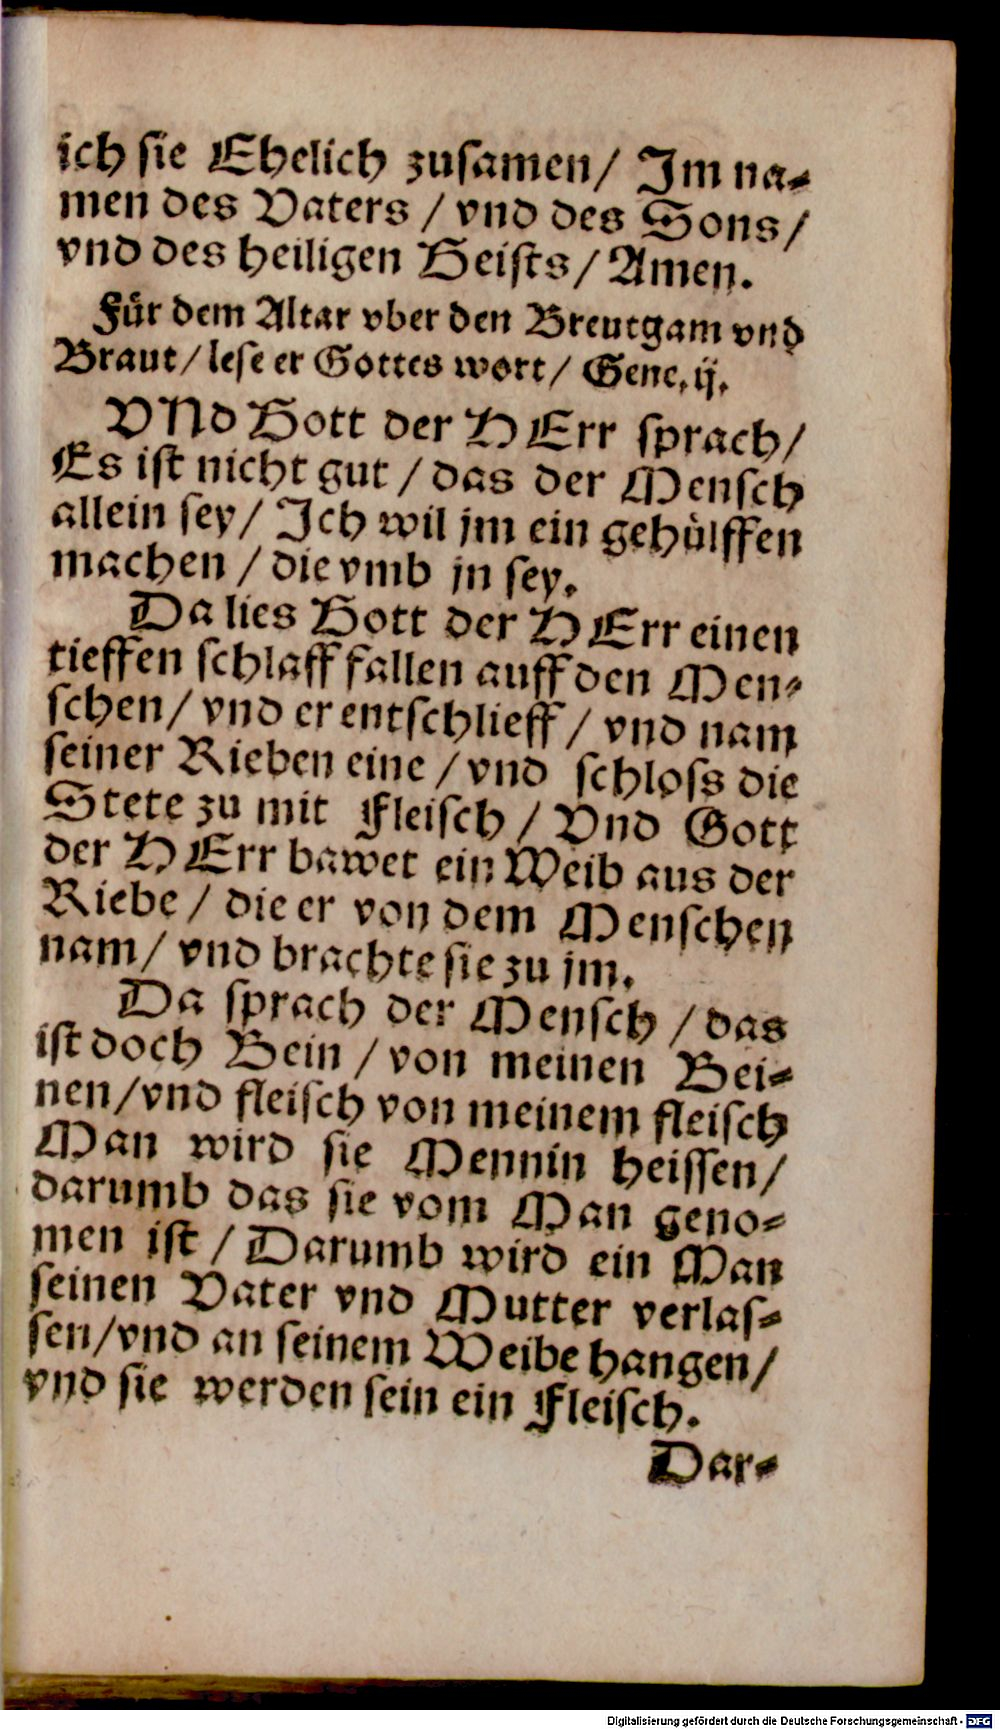 ich sie Ehelich zusamen/ Im na-
men des Vaters / vnd des Sons /
vnd des heiligen Geists / Amen.
Für dem Altar vber den Breutgam vnd
Braut / lese er Gottes wort / Gene. ij.
VNd Gott der HErr sprach /
Es ist nicht gut / das der Mensch
allein sey / Ich wil jm ein gehülffen
machen / die vmb jn sey.
Da lies Gott der HErr einen
tieffen schlaff fallen auff den Men-
schen / vnd er entschlieff / vnd nam
seiner Rieben eine / vnd schloss die
Stete zu mit Fleisch / Vnd Gott
der HErr bawet ein Weib aus der
Riebe / die er von dem Menschen
nam / vnd brachte sie zu jm.
Da sprach der Mensch / das
ist doch Bein / von meinen Bei-
nen / vnd fleisch von meinem fleisch
Man wird sie Mennin heissen /
darumb das sie vom Man geno-
men ist / Darumb wird ein Man
seinen Vater vnd Mutter verlas-
sen / vnd an seinem Weibe hangen /
vnd sie werden sein ein Fleisch.
Dar-
Digitalisierung gefördert durch die Deutsche Forschungsgemeinschaft - DFG